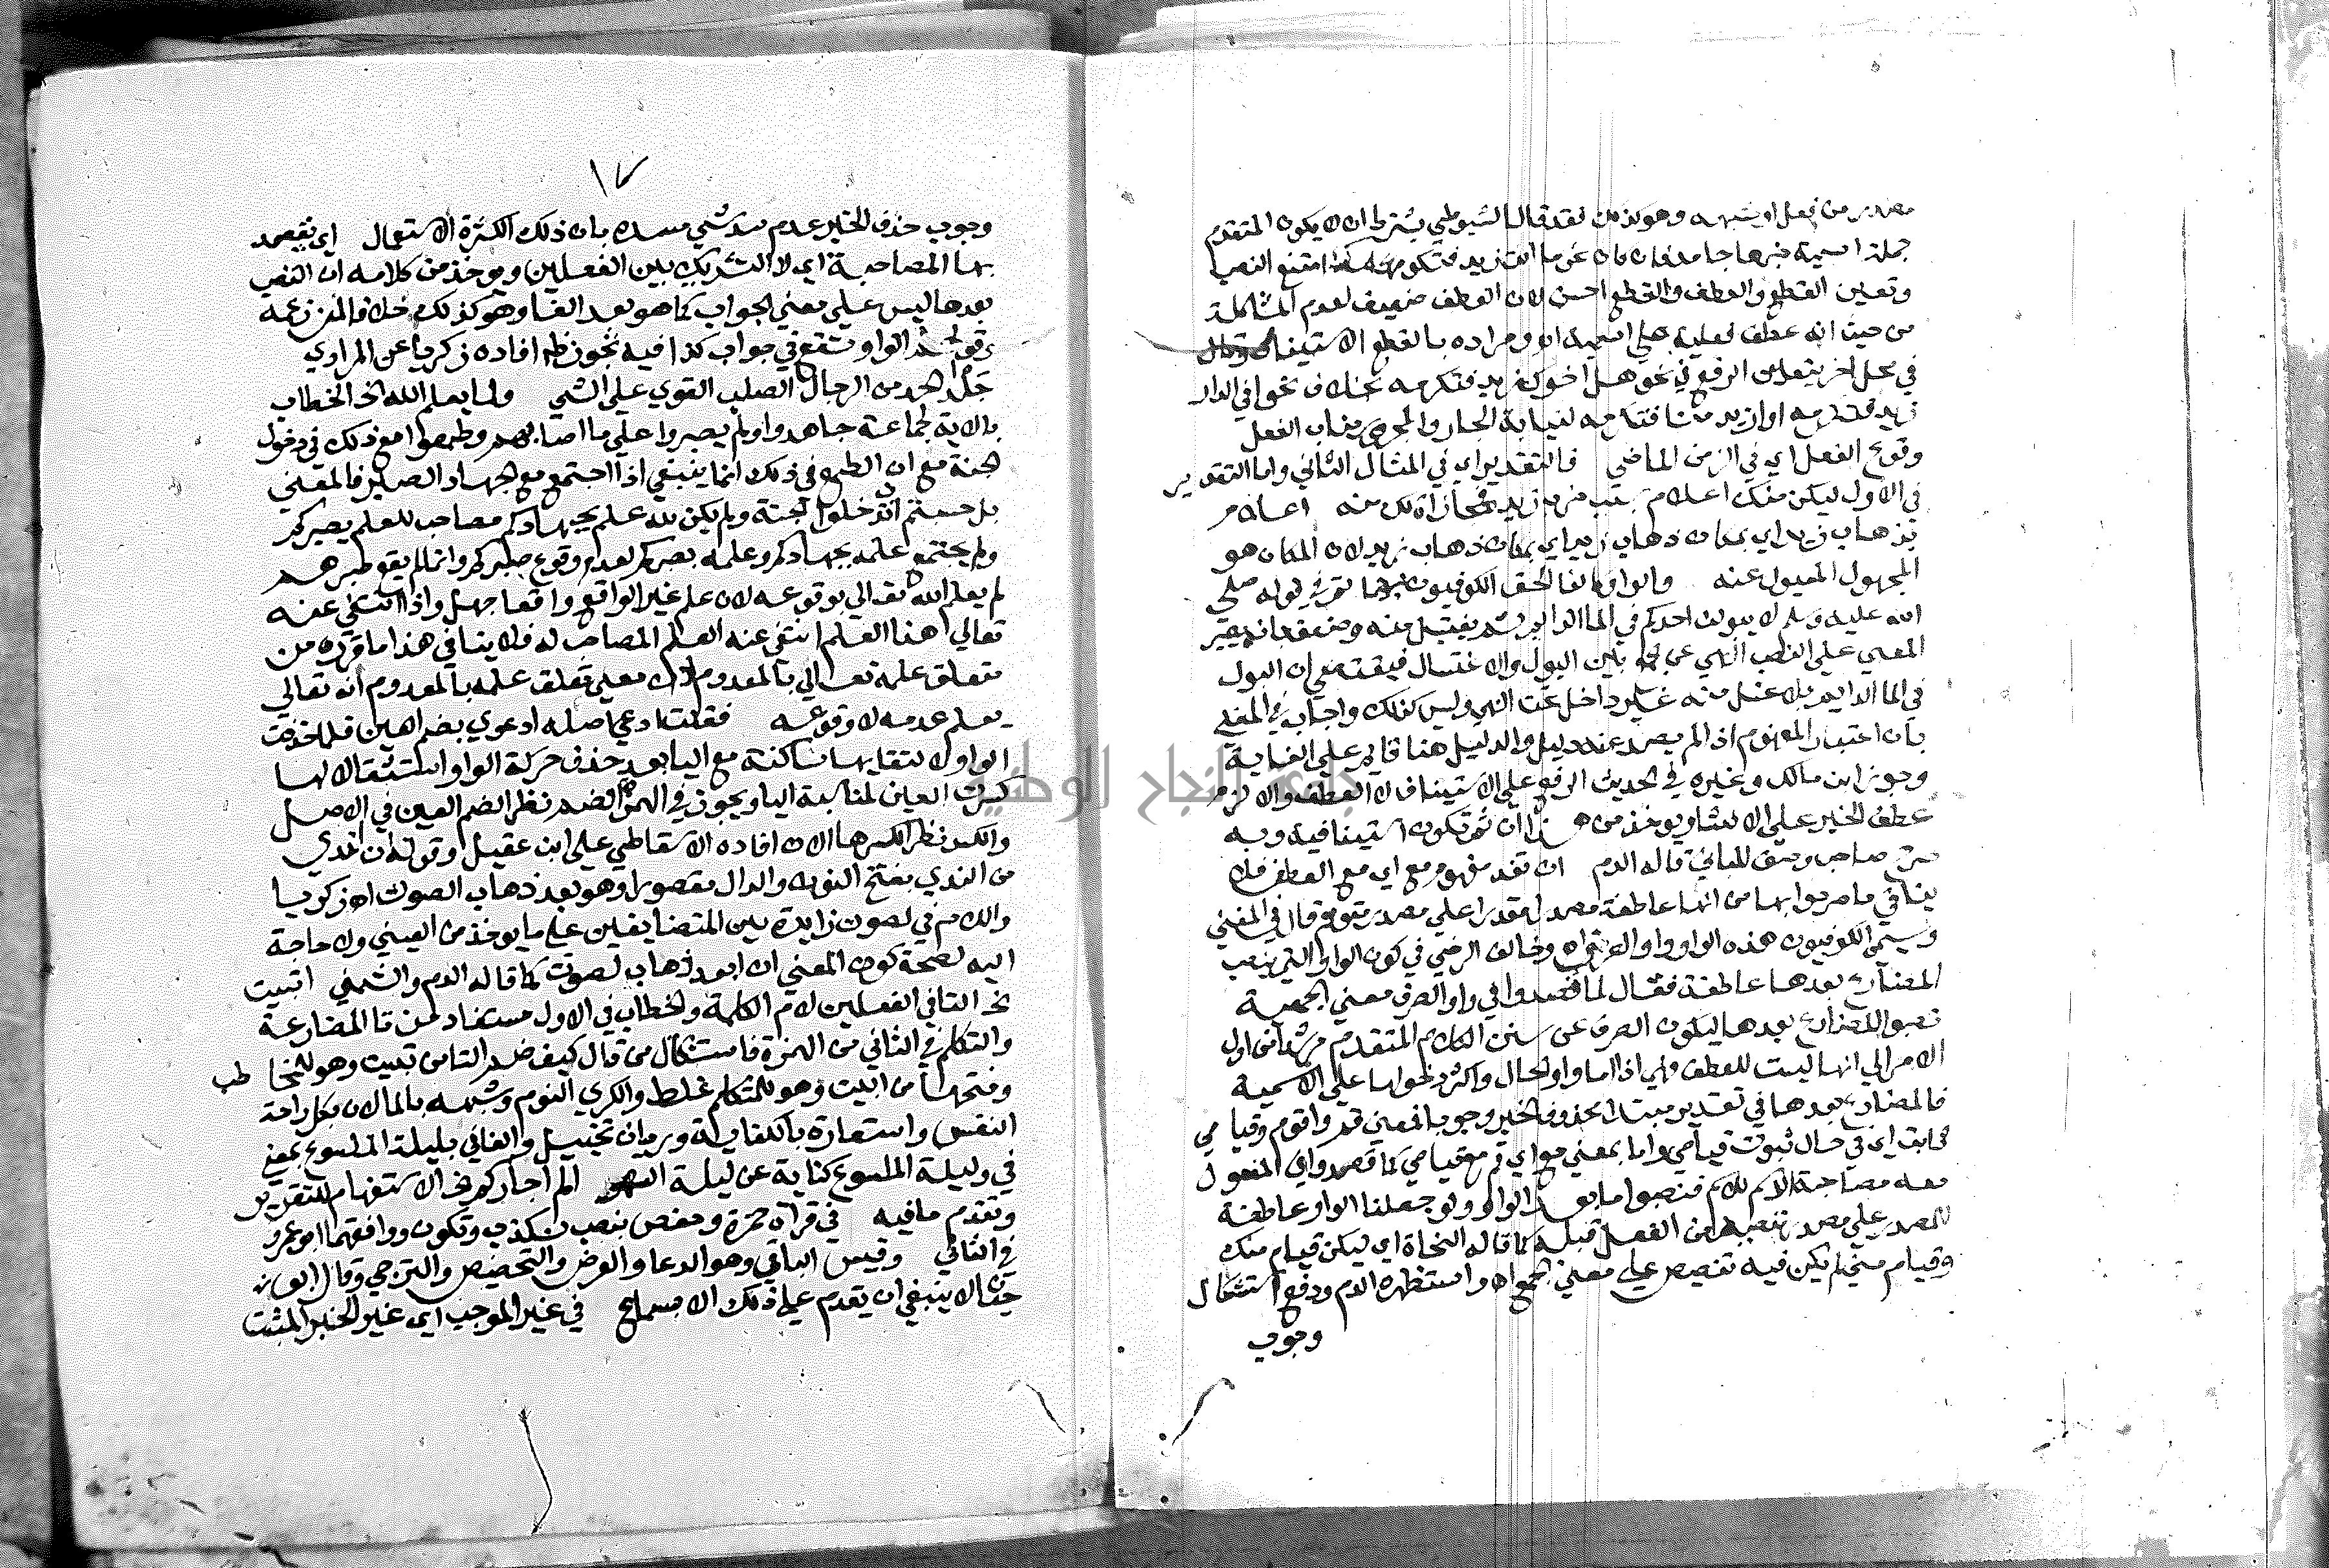 مصدر من فعل او شبهه وهو كذلك فقد قال السيوطي يشترط ان لا يكون المتقدم
جملة اسمية خبرها جامد فان كان نحو ما انت زيد فتكرمه امتنع النصب
وتعين القطع والعطف والقطع احسن لان العطف ضعيف لعدم المشاكلة
من حيث انه عطف فعلية على اسمية اه ومراده بالقطع الاستيناف وقال
في محل اخر يتعين الرفع في نحو هل اخوك زيد فنكرمه بخلاف نحو افي الدار
زيد فنكرمه او ازيد منا فنكرمه لنيابة الجار والمجرور مناب الفعل
وقوع الفعل اي في الزمن الماضي فالتقدير اي في المثال الثاني واما التقدير
في الاول ليكن منك اعلام بسبب ضرب زيد فمجازاة لك منه اعلام
بذهاب زيد اي بمكان ذهاب زيد اي بمكان ذهاب زيد لان المكان هو
المجهول المسؤل عنه والواو كالفا الحق الكوفيون بهما ثم في قوله صلى
الله عليه وسلم لا يبولن احدكم في الما الدايم ثم يغتسل منه وضعف بانه يصير
المعنى على النصب النهي عن الجمع بين البول والاغتسال فيقتضي ان البول
في الما الدايم بلا غسل منه غير داخل تحت النهي وليس كذلك واجاب في المغني
بان اعتبار المفهوم اذا لم يصد عنه دليل والدليل هنا قام على الغاية
وجوز ابن مالك وغيره في الحديث الرفع على الاستيناف لا العطف والا لزم
عطف الخبر على الانشا ويوخذ من هذا ان ثم تكون استينافية وبه
صرح صاحب رصف المباني قاله الدم ان تفد مفهوم مع اي مع العطف فلا
ينافي ما صرحوا به من انها عاطفة مصدرا مقدرا على مصدر متوهم قال في المغني
ويسمي الكوفيون هذه الواو واو الصرف اه وخالف الرضي في كون الواو التي ينصب
المضارع بعدها عاطفة فقال لما قصدوا في واو الصرف معنى الجمعية
نصبوا المضارع بعدها ليكون الصرف عن سنن الكلام المتقدم مرشدا من اول
الامر الى انها ليست للعطف فهي اذا اما واو الحال واكثر دخولها على الاسمية
فالمضارع بعدها في تقدير مبتدا محذوف الخبر وجوبا فمعنى قم واقوم وقيامي
ثابت اي في حال ثبوت قيامي واما بمعنى مع اي قم مع قيامي كما قصدوا في المفعول
معه مصاحبة الاسم للاسم فنصبوا ما بعد الواو ولو جعلنا الواو عاطفة
للمصدر على مصدر متصيد من الفعل قبله كما قاله النحاة اي ليكن قيام منك
وقيام مني لم يكن فيه تنصيص على معنى الجمع اه واستظهره الدم ودفع استشكال
وجوب
١٧
وجوب حذف الخبر عدم سد شي مسده بان ذلك لكثرة الاستعمال اي يقصد
بها المصاحبة اي لا التشريك بين الفعلين ويوخذ من كلامه ان النصب
بعدها ليس على معنى الجواب كما هو بعد الفا وهو كذلك خلافا لمن زعمه
وقولهم الواو تقع في جواب كذا فيه تجوز ظم افاده زكريا عن المرادي
جلد هو من الرجال الصلب القوي على الشي ولما يعلم الله الخ الخطاب
بالاية لجماعة جاهدوا ولم يصبروا على ما اصابهم وطمعوا مع ذلك في دخول
الجنة مع ان الطمع في ذلك انما ينبغي اذا اجتمع مع الجهاد الصبر فالمعنى
بل حسبتم ان تدخلوا الجنة ولم يكن لله علم بجهادكم مصاحب للعلم بصبركم
ولم يجتمع علمه بجهادكم وعلمه بصبركم لعدم وقوع صبركم وانما لم يقع صبرهم
لم يعلم الله تعالى بوقوعه لان علم غير الواقع واقعا جهل واذا انتفى عنه
تعالى هذا العلم انتفى عنه العلم المصاحب له فلا ينافي هذا ما قرره من
تعلق علمه تعالى بالمعدوم لان معنى تعلق علمه بالمعدوم انه تعالى
يعلم عدمه لا وقوعه فقلت ادعي اصله ادعوي بضم العين فلما حذفت
الواو لالتقايها ساكنة مع اليا بعد حذف حركة الواو استثقالا لها
كسرت العين لمناسبة اليا ويجوز في الهمزة الضم نظرا لضم العين في الاصل
والكسر نظرا لكسرها الان افاده الاسقاطي على ابن عقيل وقوله ان اندى
من الندى بفتح النون والدال مقصورا وهو بعد ذهاب الصوت اه زكريا
واللام في لصوت زايدة بين المتضايفين على ما يوخذ من العيني ولا حاجة
اليه لصحة كون المعنى ان ابعد ذهاب لصوت كما قاله الدم والشمني اتبيت
الخ التا في الفعلين لام الكلمة والخطاب في الاول مستفاد من تا المضارعة
والتكلم في الثاني من الهمزة فاستشكال من قال كيف ضم التا من تبيت وهو للمخاطب
وفتحها من ابيت وهو للمتكلم غلط والكرى النوم وشبهه بالما لان بكل راحة
النفس واستعارة بالكناية وريان تخييل والثاني بليلة الملسوع بمعنى
في وليلة الملسوع كناية عن ليلة السهر الم اجاركم الخ الاستفهام للتقرير
وتقدم ما فيه في قراة حمزة وحفص بنصب نكذب وتكون ووافقهما ابو عمرو
في الثاني وقيس الباقي وهو الدعا والعرض والتحضيض والترجي وقال ابو
حيان لا ينبغي ان يقدم على ذلك الا بسماع في غير الموجب اي غير الخبر المثبت
جامعة النجاح الوطنية